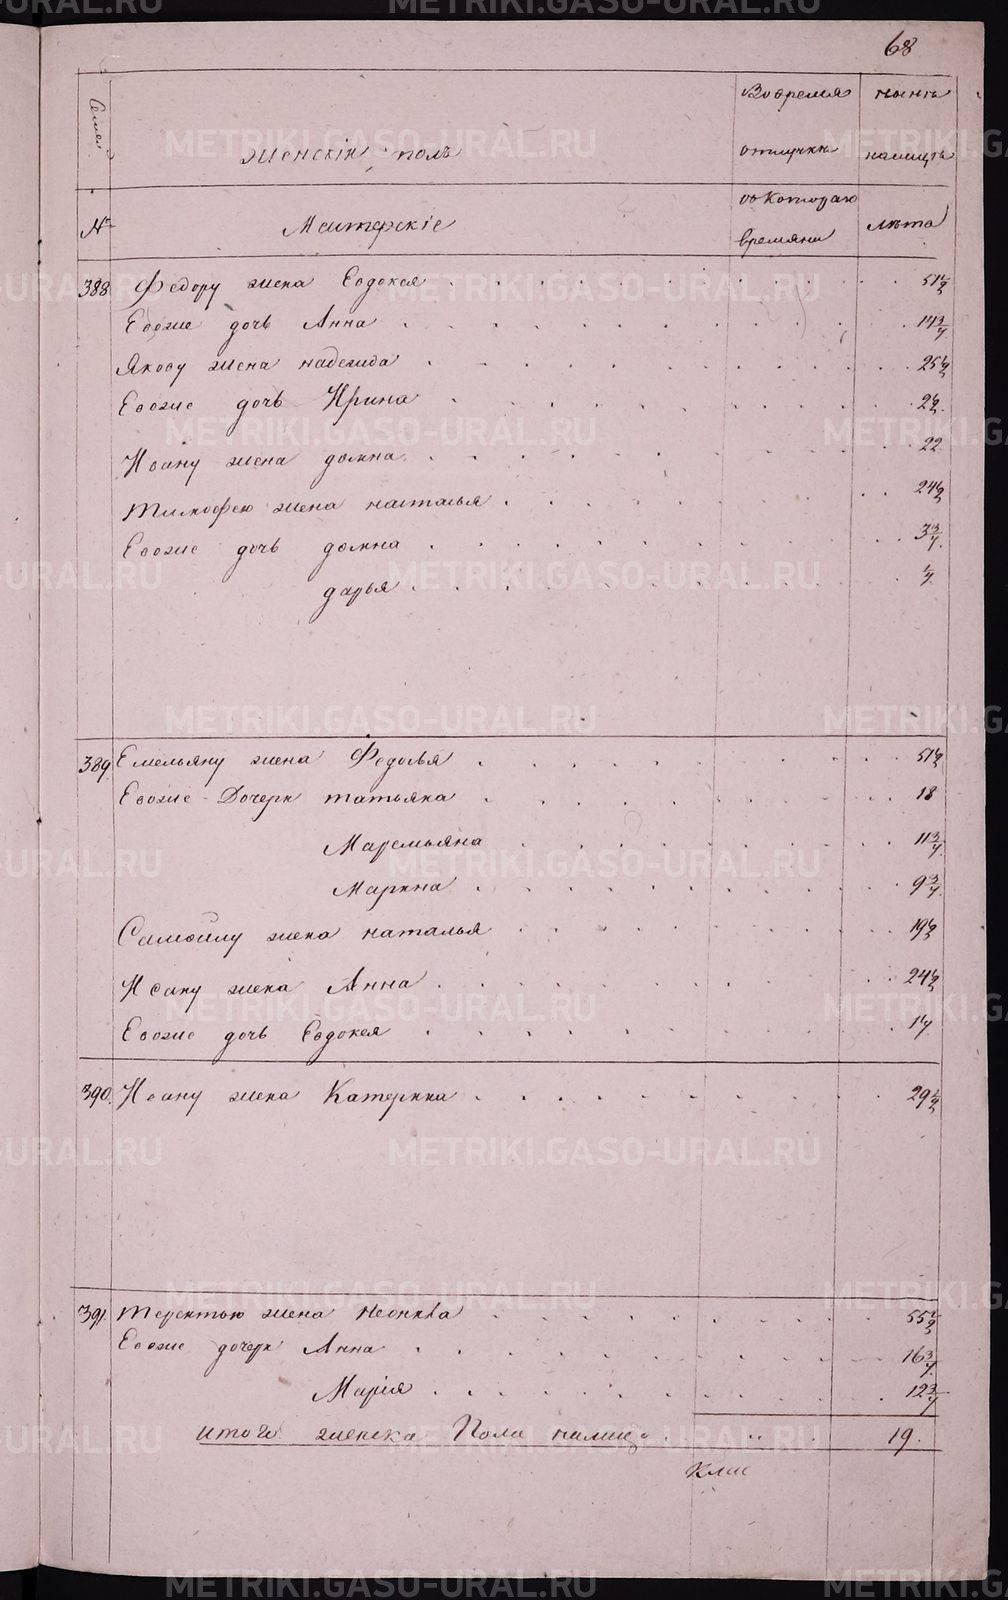 68
Семей
женскiй полъ
Вовремя
отлучки
нынѣ
налицѣ
№
Мастерскiе
съ Котораго
времяни
лѣта
388 Федору жена Евдокея 51 1/2
Евоже дочь Анна 14 3/4
Якову жена надежда 25 1/2
Евоже дочь Ирина 2 1/2
Ивану жена домна 22
тимофею жена наталья 24 1/2
Евоже дочь домна 3 3/4
дарья 1/4
389 Емельяну жена Федосья 51 1/2
Евоже Дочери татьяна 18
Маремьяна 11 3/4
Марина 9 3/4
Самойлу жена наталья 19 1/2
Ивану жена Анна 24 1/2
Евоже дочь Евдокея 1 1/4
390 Ивану жена Катерина 29 1/2
391 терентью жена неонила 55 1/2
Евоже дочери Анна 16 3/4
Марiя 12 3/4
итого женска Пола налицо 19
METRIKI.GASO-URAL.RU